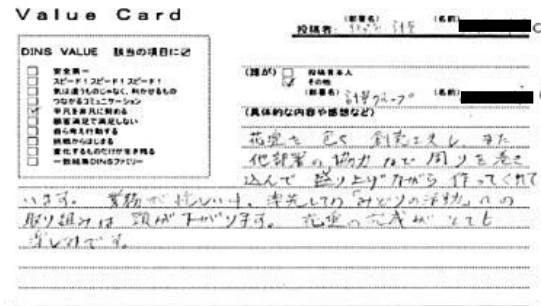 Value Card
投稿者 (部署名) (名前)
DINS VALUE 該当の項目に☑
安全第一
スピード！スピード！スピード！
気は遣うものじゃなく、利かせるもの
つながるコミュニケーション
平凡を非凡に努める
顧客満足で満足しない
自ら考え行動する
挑戦からはじまる
変化するものだけが生き残る
一致結束DINSファミリー
(誰が) 投稿者本人
その他
(部署名) 計量グループ (名前)
(具体的な内容や感想など)
花壇を 創意工夫し、また
他部署の協力 周りを巻き
込んで 盛り上げながら 作ってくれて
います。 業務が忙しい中、率先しての「みどりの活動」への
取り組みは 頭が下がります。 花壇の完成が とても
楽しみです。